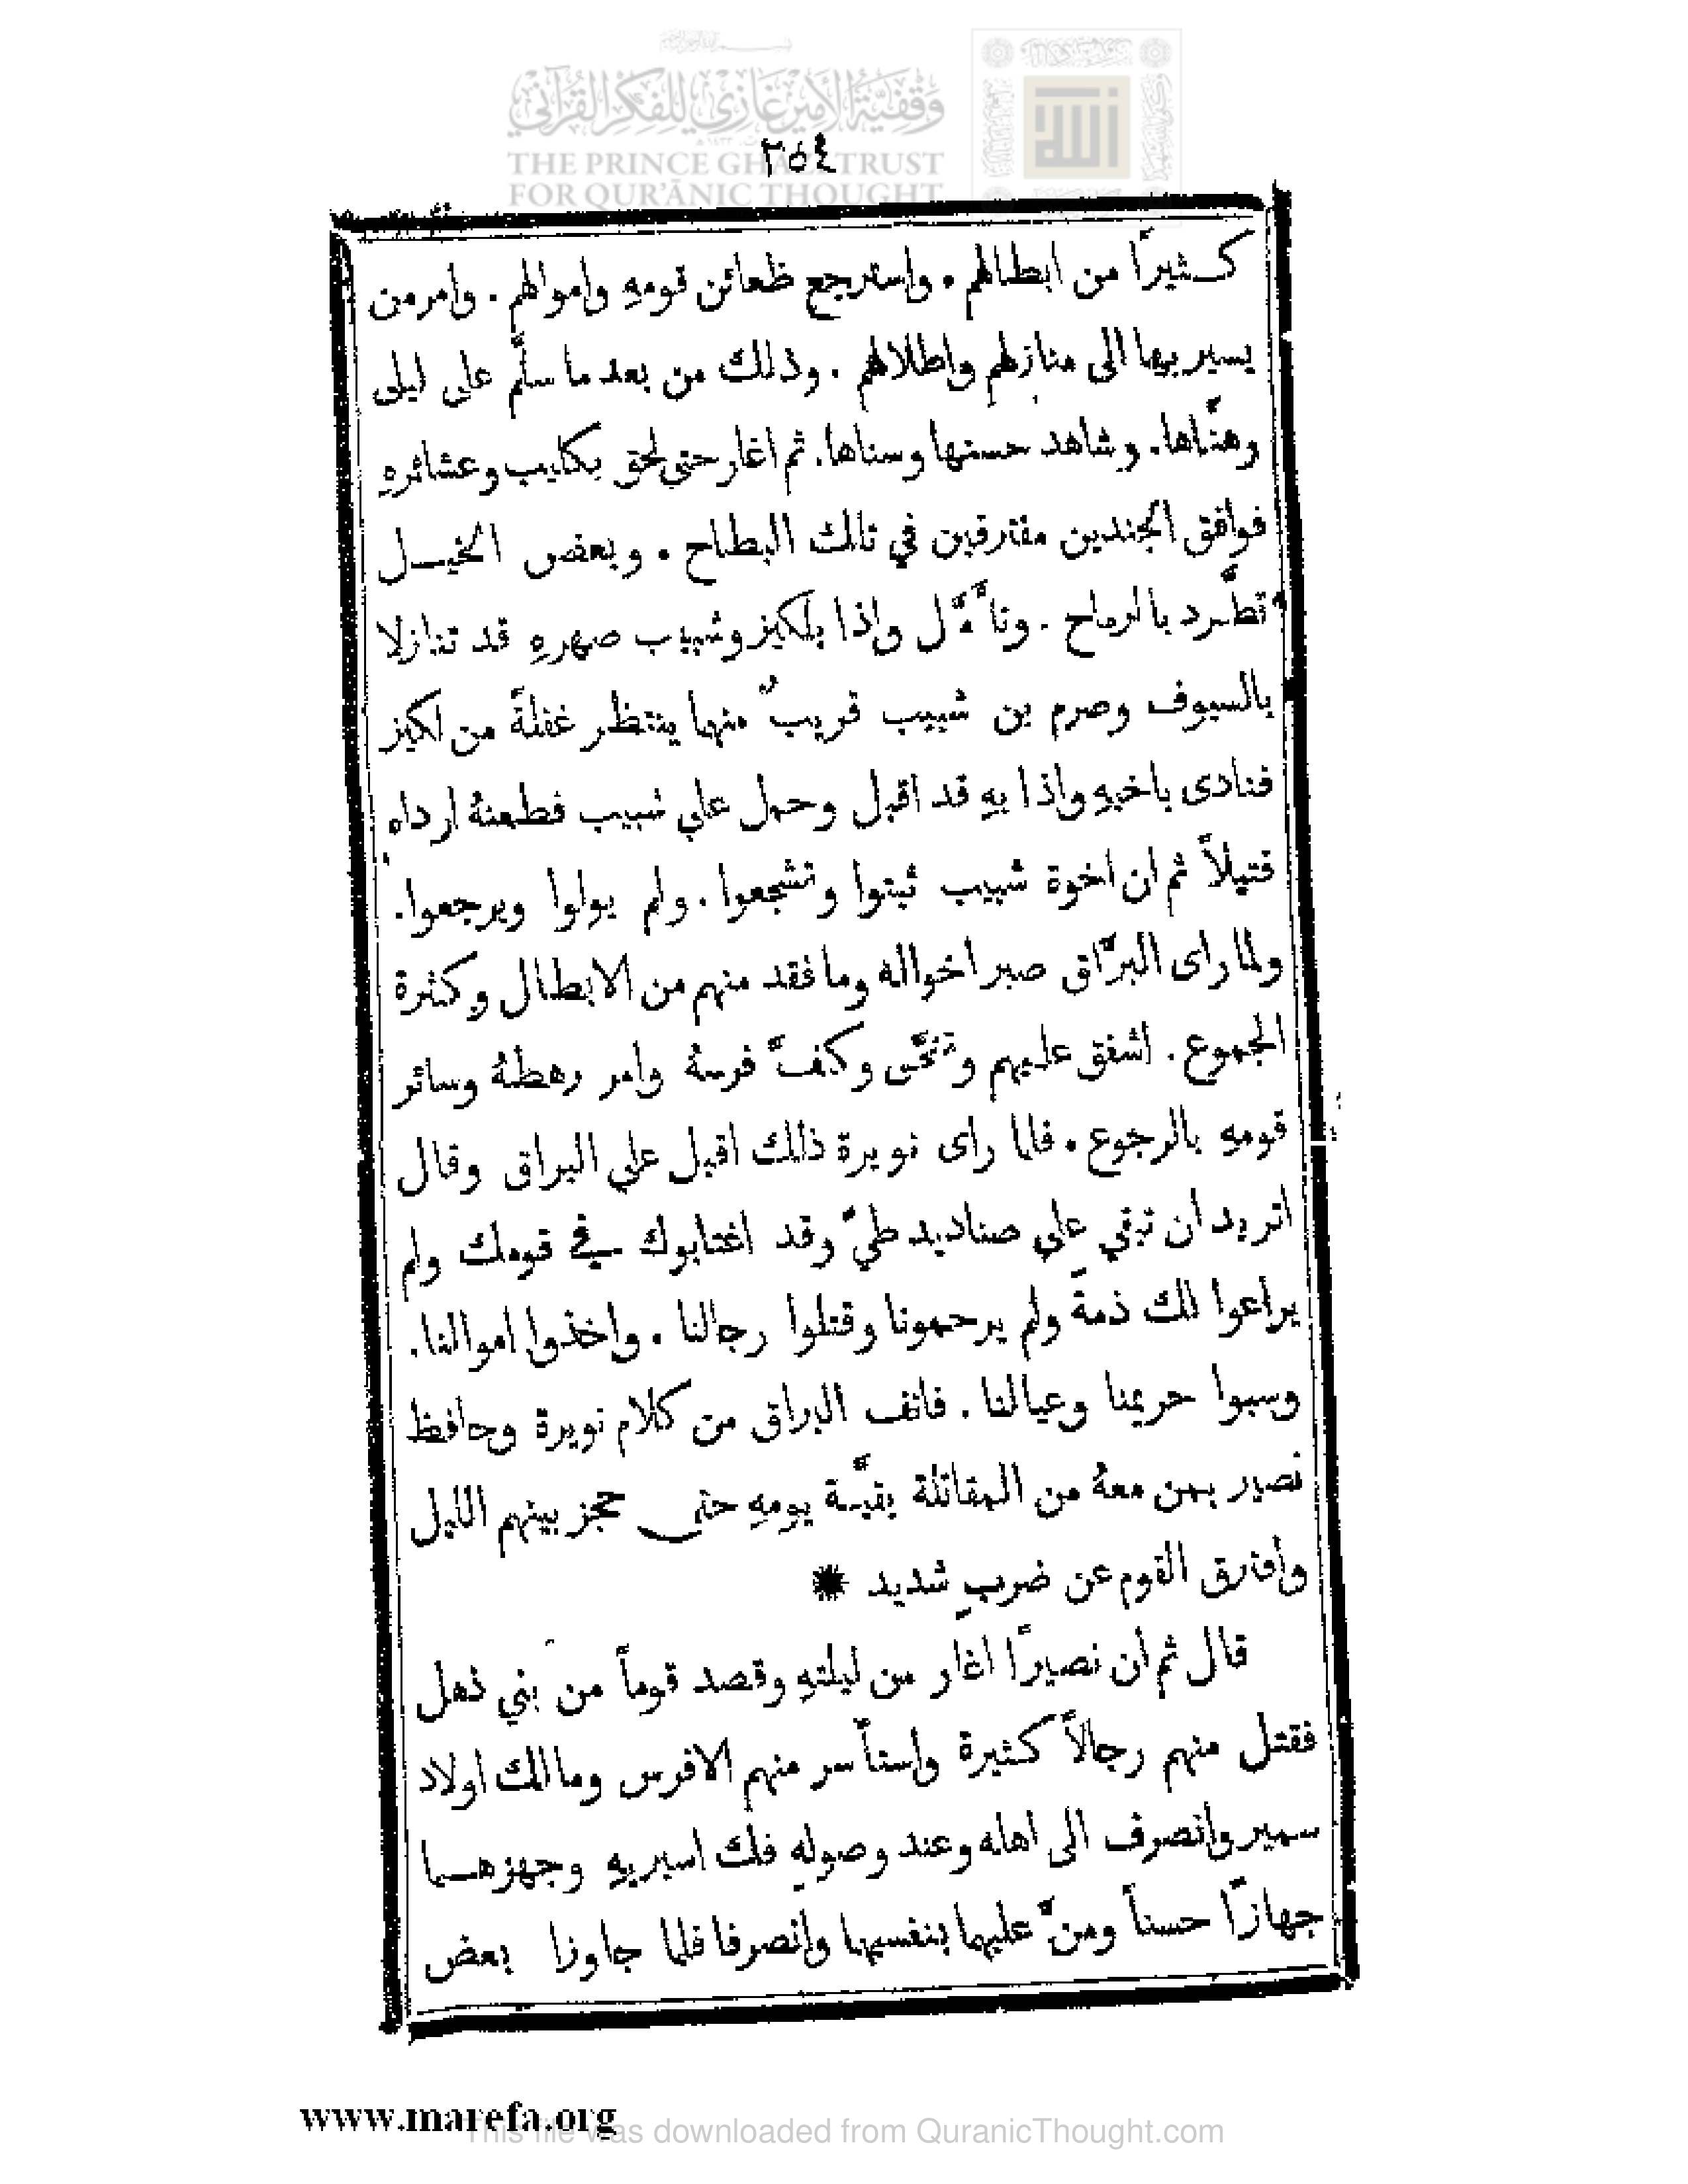 وقفية الأمير غازي للفكر القرآني
THE PRINCE GHAZI TRUST
FOR QUR'ĀNIC THOUGHT
٢٥٤
كثيرًا من ابطالهم . واسترجع ظعائن قومهِ واموالهم . وامر من
يسير بها الى منازلهم واطلالهم . وذلك من بعد ما سلَّم على ليلى
وهنَّاها . وشاهد حسنها وسناها . ثم اغار حتى لحق بكليب وعشائرهِ
فوافق الجندين مفترقين في تلك البطاح . وبعض الخيل
تطَّرد بالرماح . وتأمَّل واذا بلكيز وشبيب صهرهِ قد تنازلا
بالسيوف وصرم بن شبيب قريبٌ منهما ينتظر غفلةً من لكيز
فنادى باخيهِ واذا بهِ قد اقبل وحمل على شبيب فطعنهُ ارداه
قتيلاً ثم ان اخوة شبيب ثبتوا وتشجعوا . ولم يولوا ويرجعوا .
ولما راى البرَّاق صبر اخواله وما فقد منهم من الابطال وكثرة
الجموع . اشفق عليهم وتنحَّى وكفَّ فرسهُ وامر رهطهُ وسائر
قومهِ بالرجوع . فلما راى نويرة ذلك اقبل على البراق وقال
اتريد ان تبقي على صناديد طيّ وقد اغتابوك في قومك ولم
يراعوا لك ذمةً ولم يرحمونا وقتلوا رجالنا . واخذوا اموالنا .
وسبوا حريمنا وعيالنا . فانف البراق من كلام نويرة وحافظ
نصير بمن معهُ من المقاتلة بقيَّة يومهِ حتى حجز بينهم الليل
وافترق القوم عن ضربٍ شديد *
قال ثم ان نصيرًا اغار من ليلتهِ وقصد قوماً من بني ذهل
فقتل منهم رجالاً كثيرة واستأسر منهم الافرس ومالك اولاد
سمير وانصرف الى اهله وعند وصولهِ فك اسيريهِ وجهزهما
جهازًا حسناً ومنَّ عليهما بنفسيهما وانصرفا فلما جاوزا بعض
www.marefa.org
This file was downloaded from QuranicThought.com